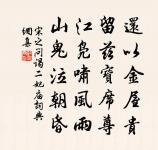 還以金屋貴
留茲寶席尊
江鳧嘯風雨
山鬼泣朝昏
宋之問謁二妃廟詞典
網集